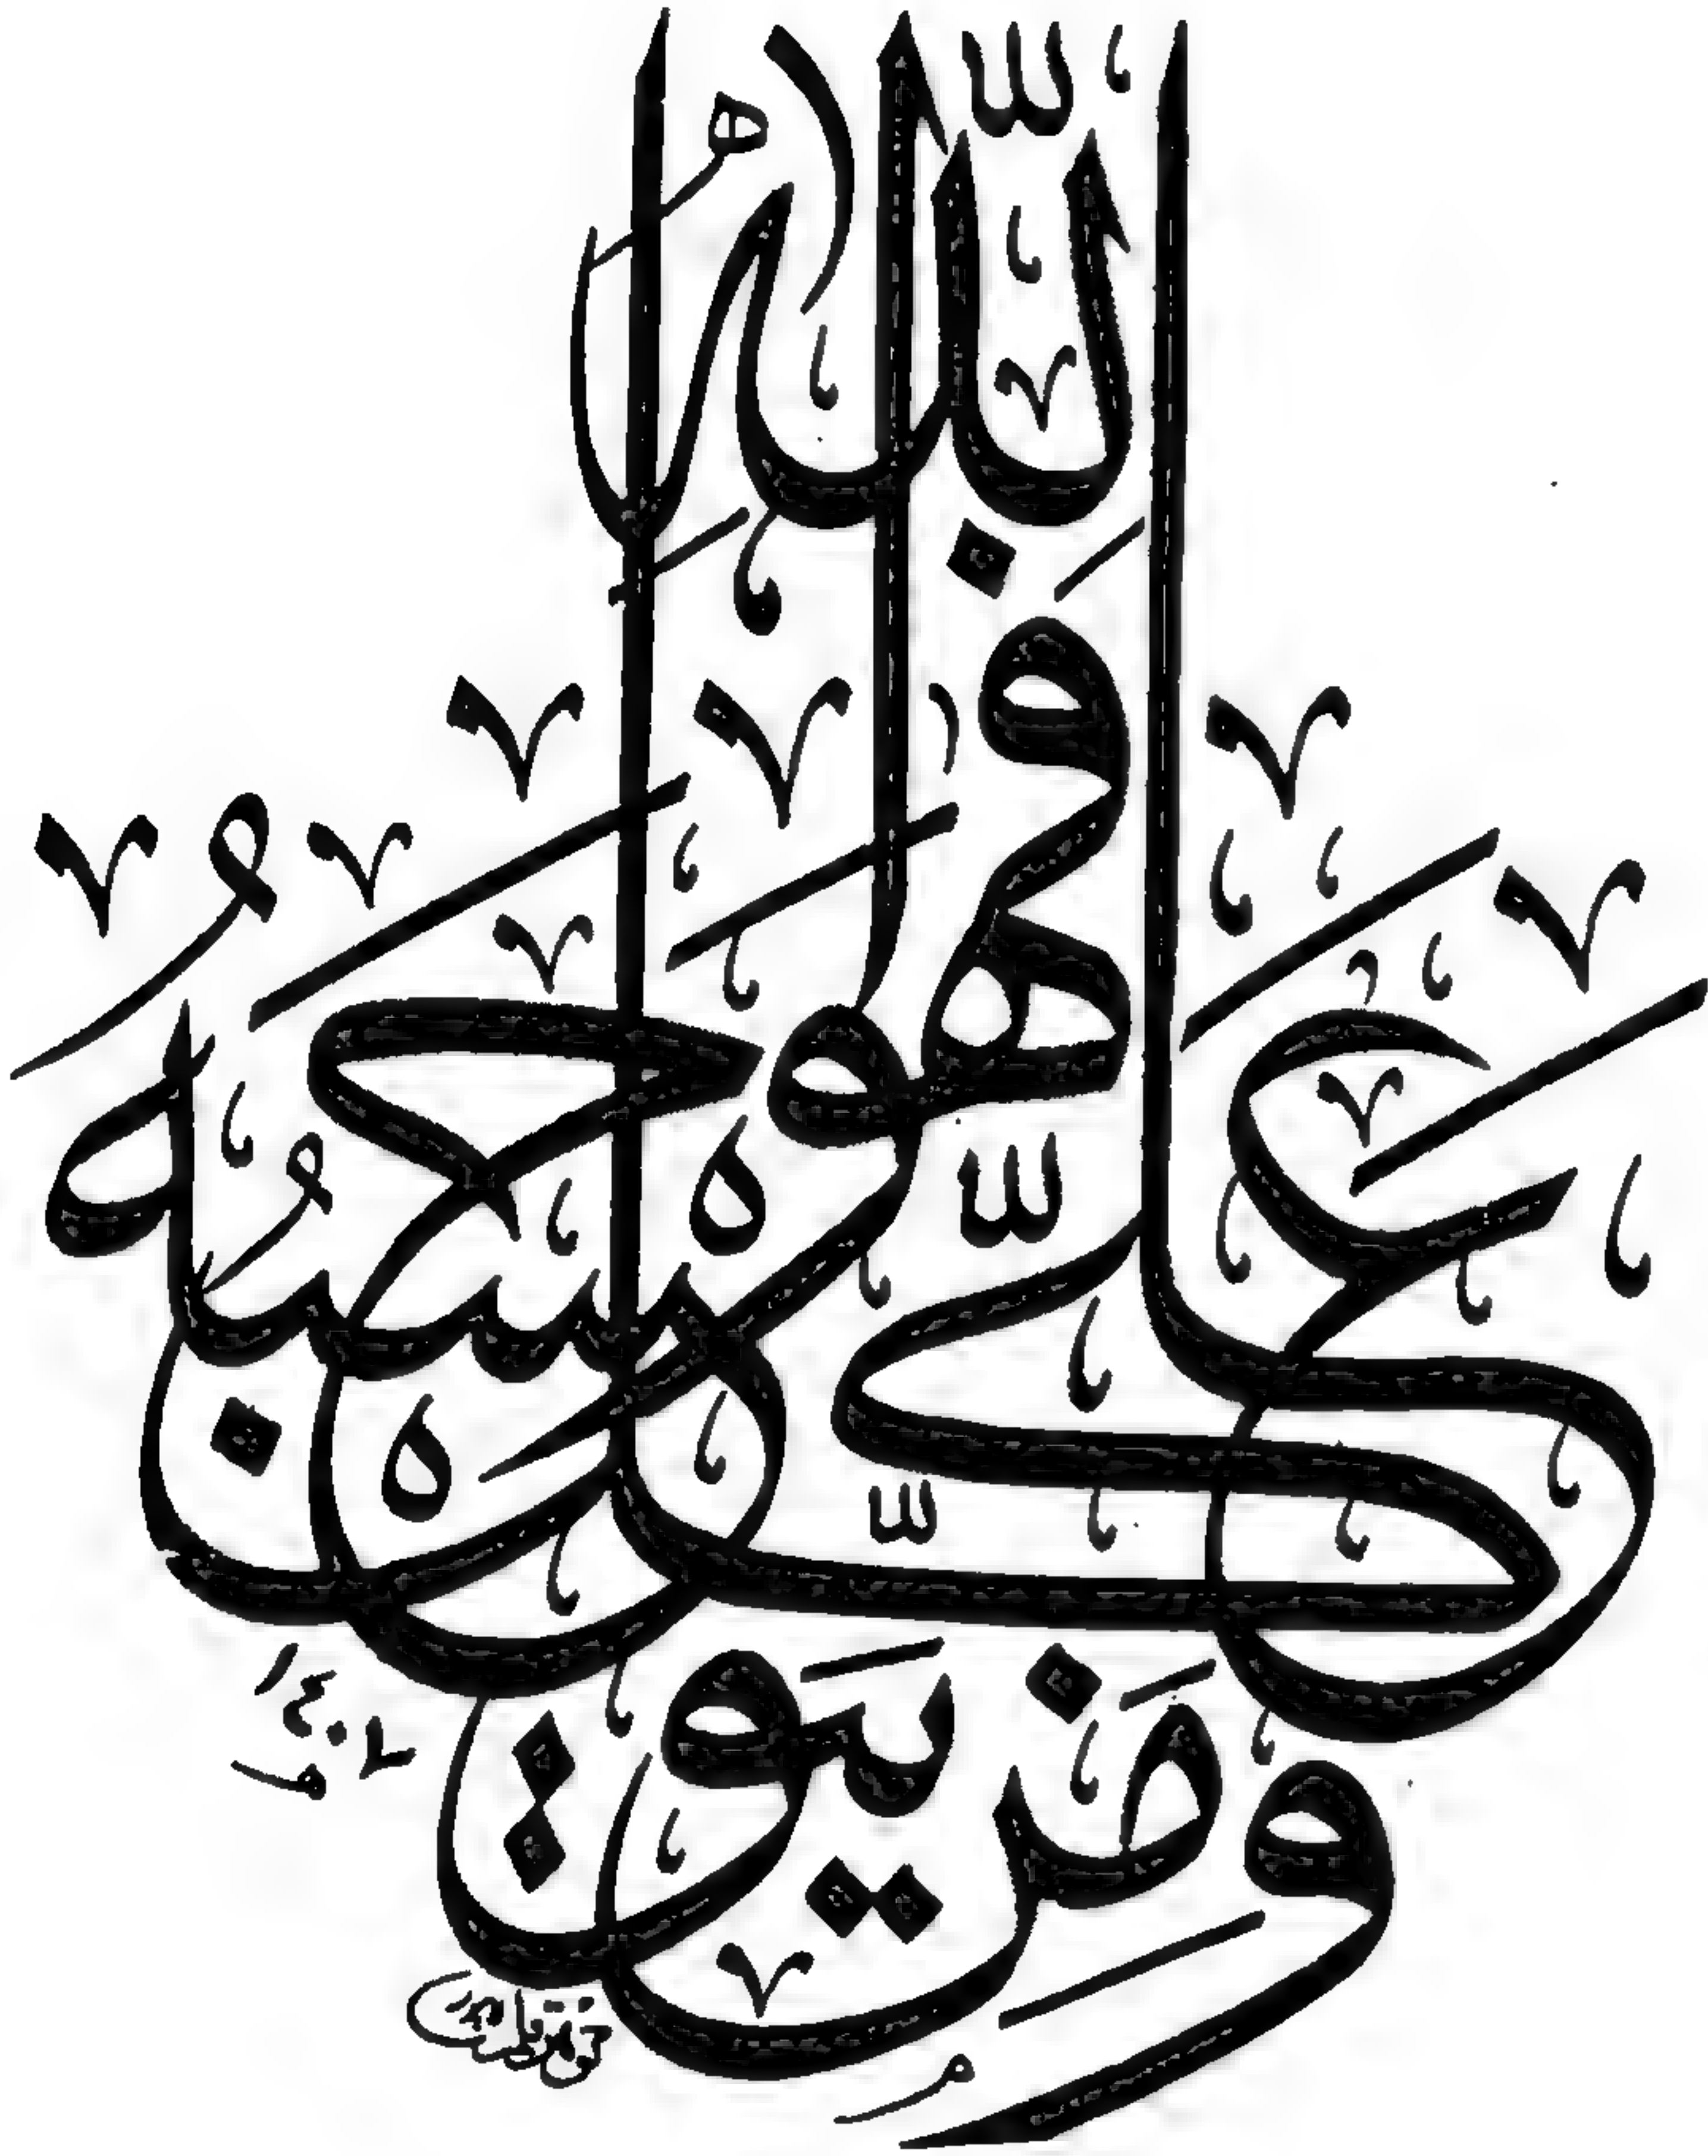 وَمَنْ يَتَوَكَّلْ عَلَى اللّٰهِ فَهُوَ حَسْبُهُ
١٤٠٢